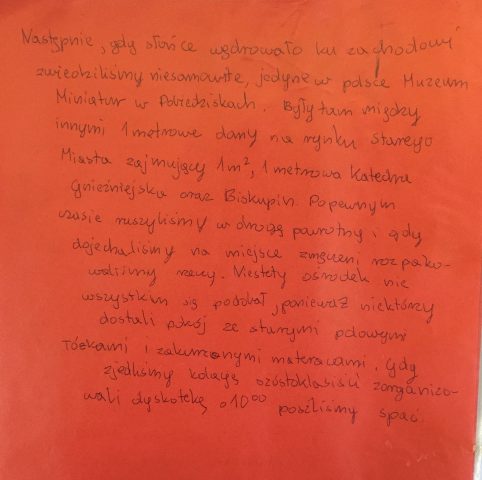 Następnie, gdy słońce wędrowało ku zachodowi
zwiedziliśmy niesamowite, jedyne w polsce Muzeum
Miniatur w Pobiedziskach. Były tam między
innymi 1 metrowe domy na rynku starego
Miasta zajmujący 1m², 1 metrowa Katedra
Gnieźniejska oraz Biskupin. Po pewnym
czasie ruszyliśmy w drogę powrotny i gdy
dojechaliśmy na miejsce zmęczeni rozpako-
waliśmy rzeczy. Niestety ośrodek nie
wszystkim się podobał, ponieważ niektórzy
dostali pokój ze starymi
łóżkami i zakurzonymi materacami. Gdy
zjedliśmy kolację szóstoklasiści zorganizo-
wali dyskotekę, o 10⁰⁰ poszliśmy spać.